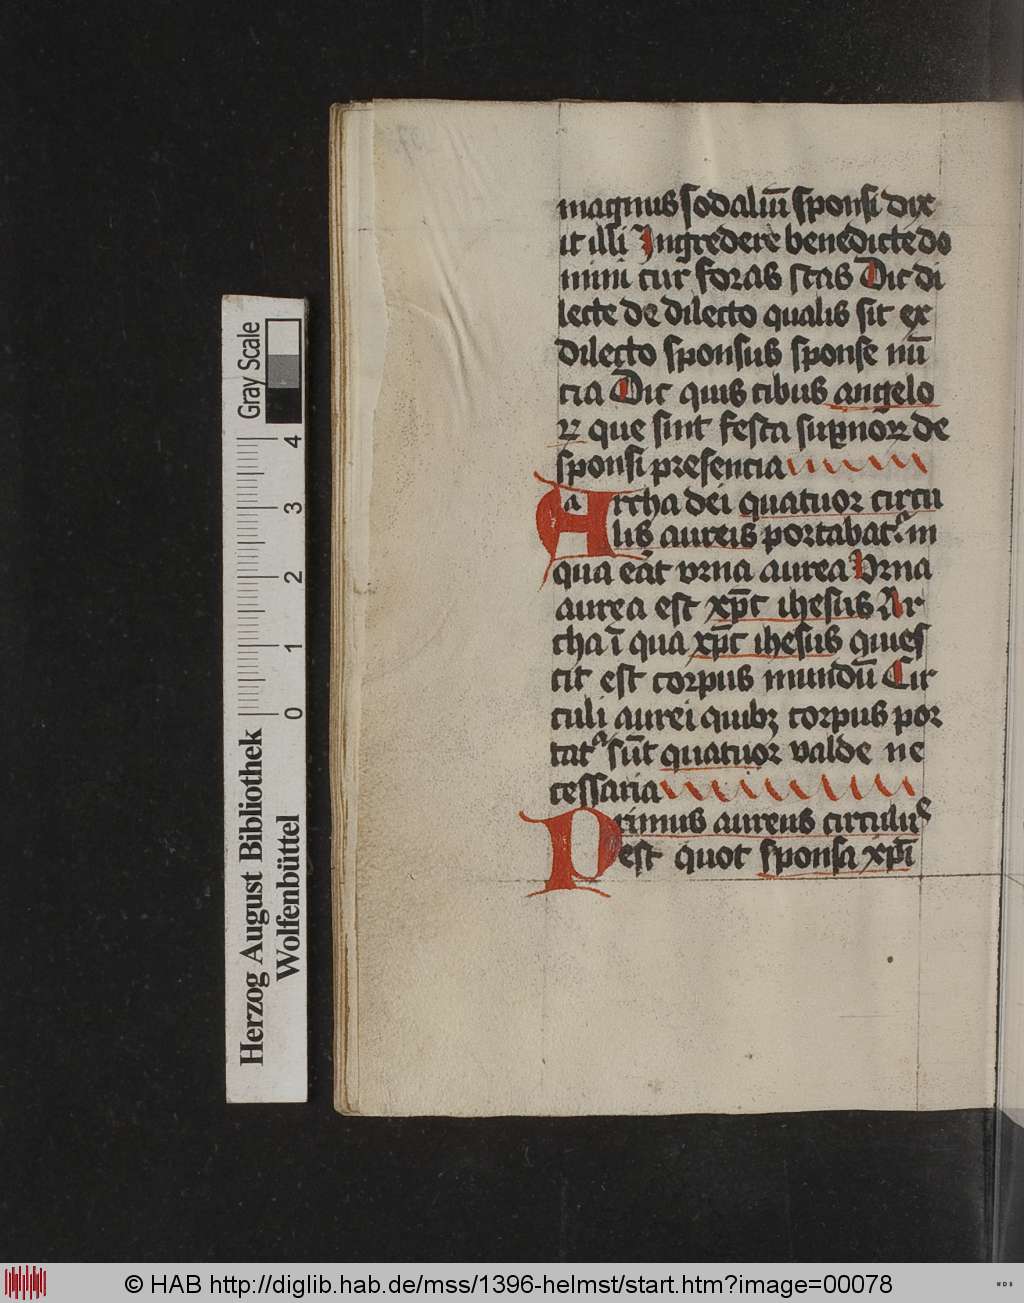 magnus sodaliū sponsi dix
it illi Ingredere benedicte do
mini cur foras stas Dic di
lecte de dilecto qualis sit ex
dilecto sponsus sponse nū
cia Dic quis cibus angelo
ꝝ que sint festa suꝑnoꝝ de
sponsi presencia
Archa dei quatuor circu
lis aureis portabatᷣ in
qua eāt vrna aurea Vrna
aurea est xp̄c ihesus Ar
cha ī qua xp̄c ihesus quies
cit est corpus mundū Cir
culi aurei quibꝫ corpus por
tatᷣ sūt quatuor valde ne
cessaria
Primus aureus circulus
est quot sponsa xp̄i
Gray Scale
4
3
2
1
0
Herzog August Bibliothek
Wolfenbüttel
© HAB http://diglib.hab.de/mss/1396-helmst/start.htm?image=00078